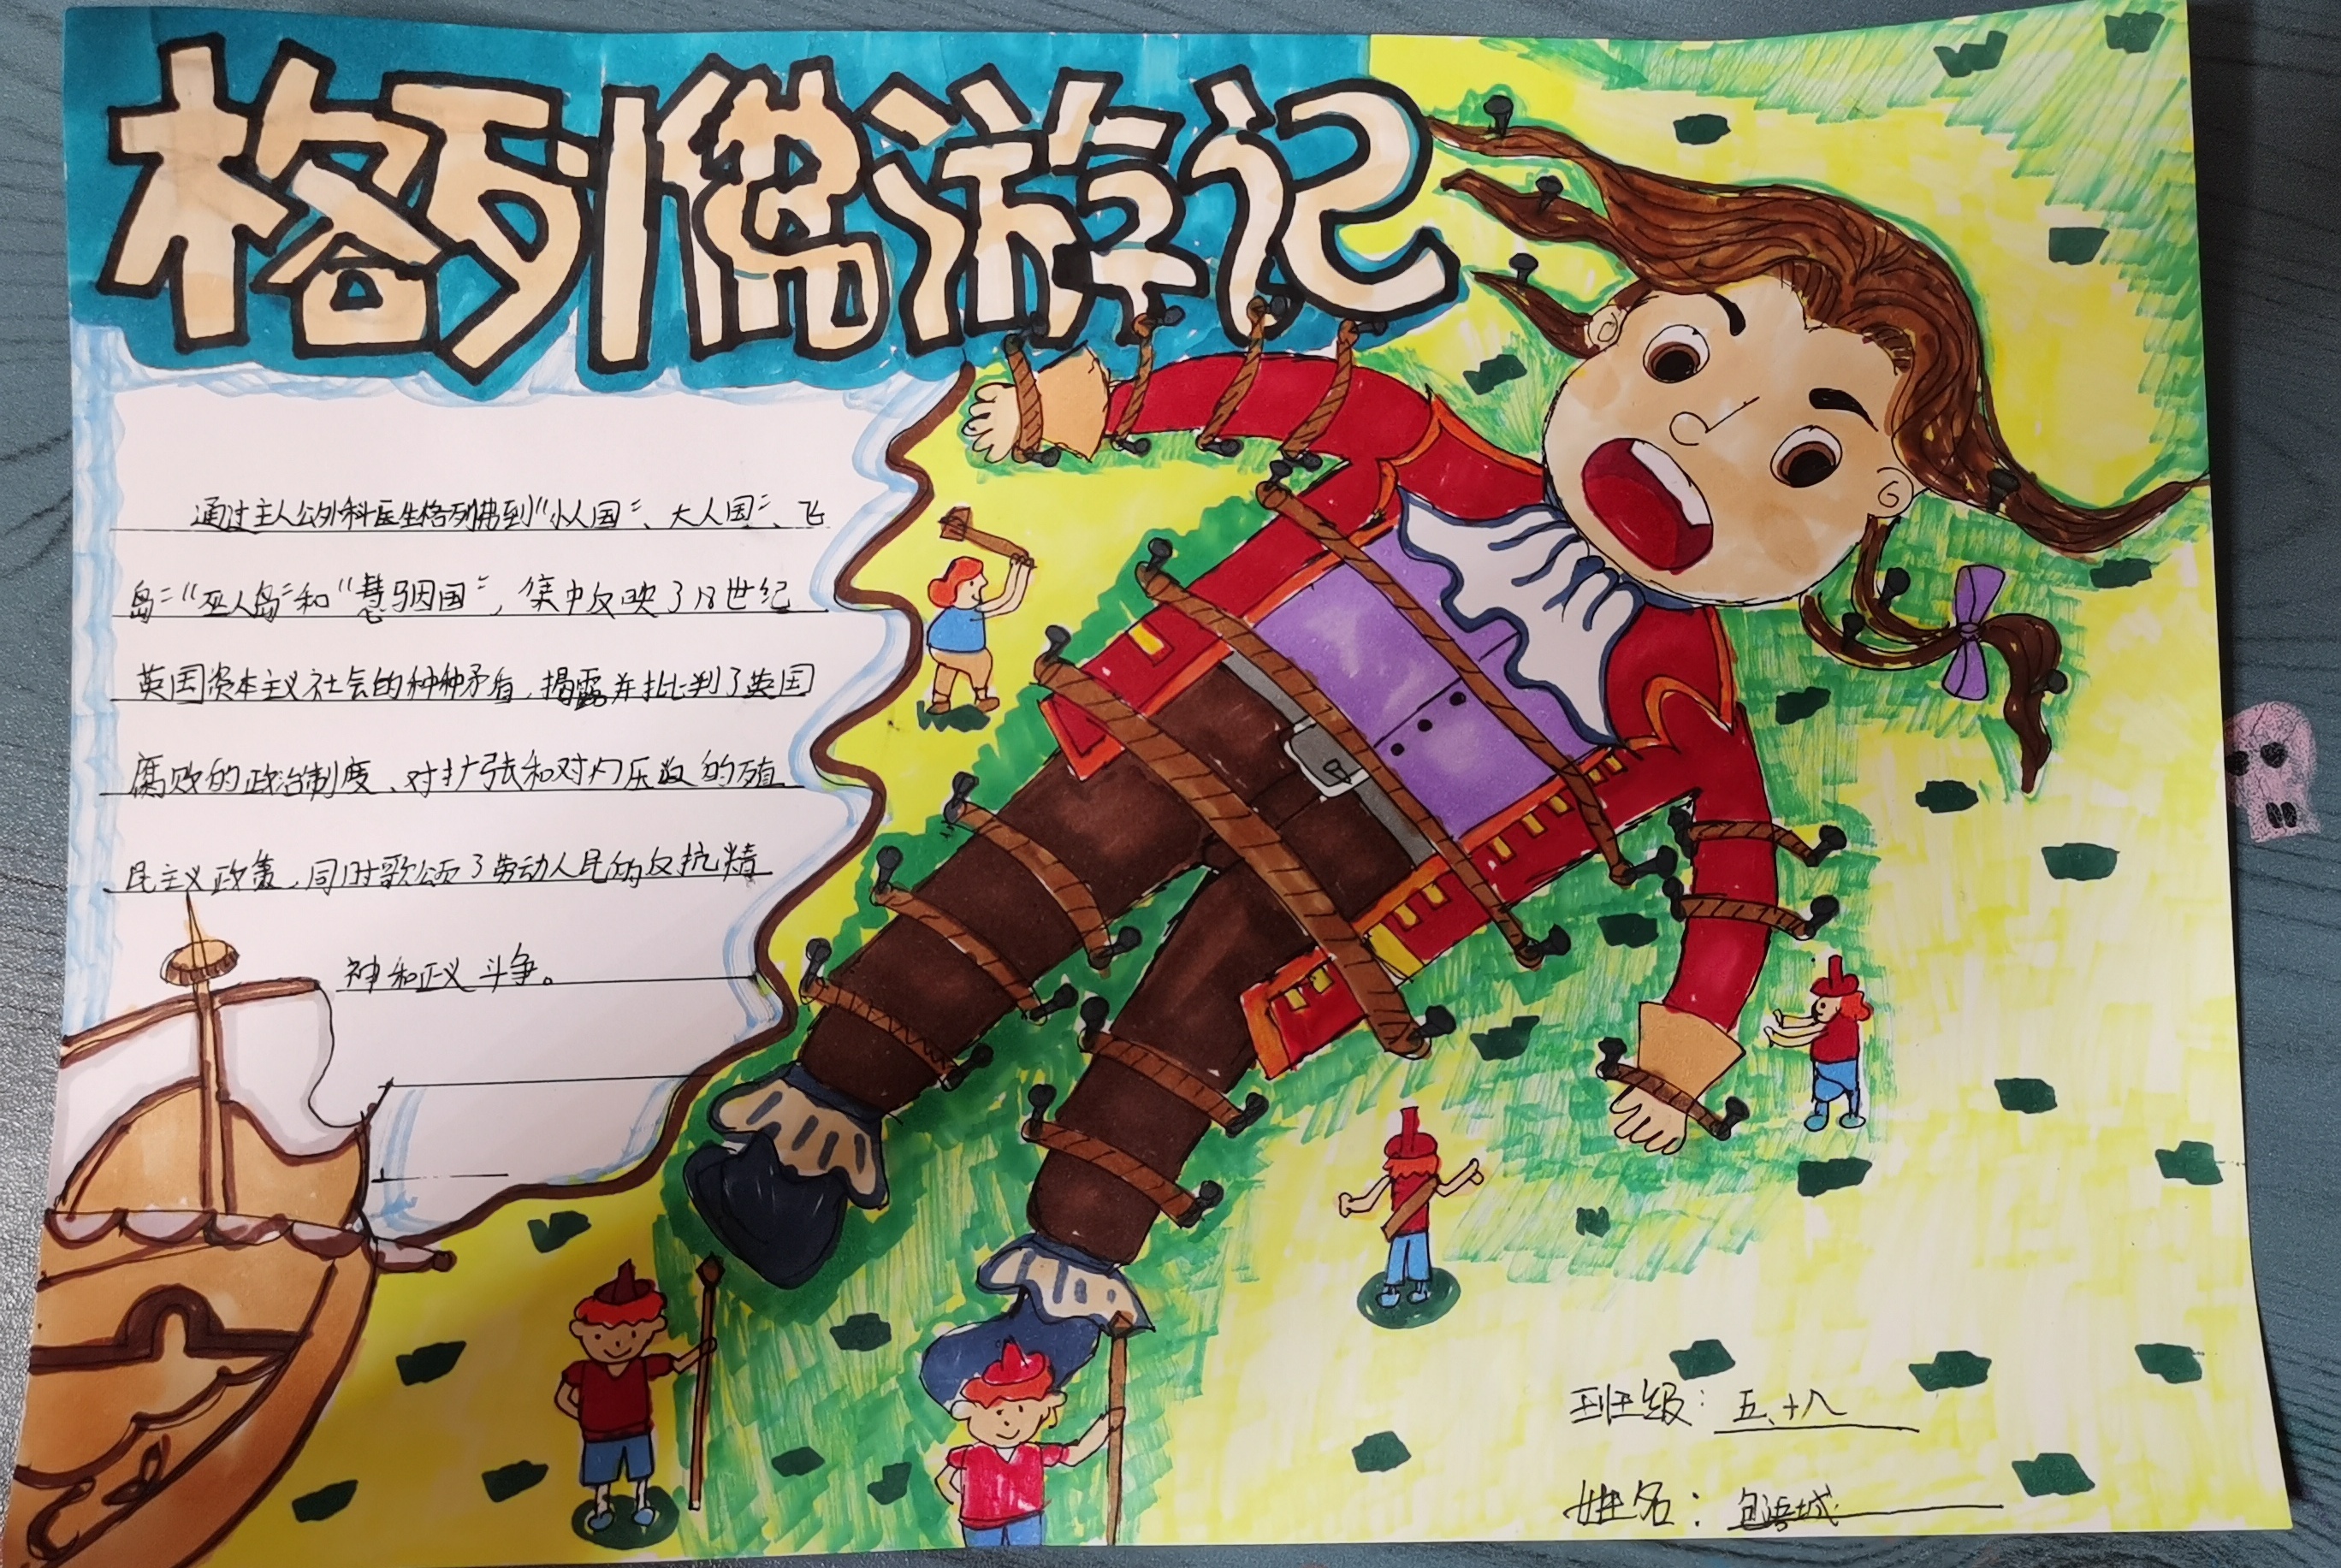 格列佛游记
通过主人公外科医生格列佛到“小人国”、大人国”、飞
岛”“巫人岛”和“慧骃国”，集中反映了18世纪
英国资本主义社会的种种矛盾，揭露并批判了英国
腐败的政治制度、对扩张和对内压迫的殖
民主义政策，同时歌颂了劳动人民的反抗精
神和正义斗争。
班级：五、十八
姓名：